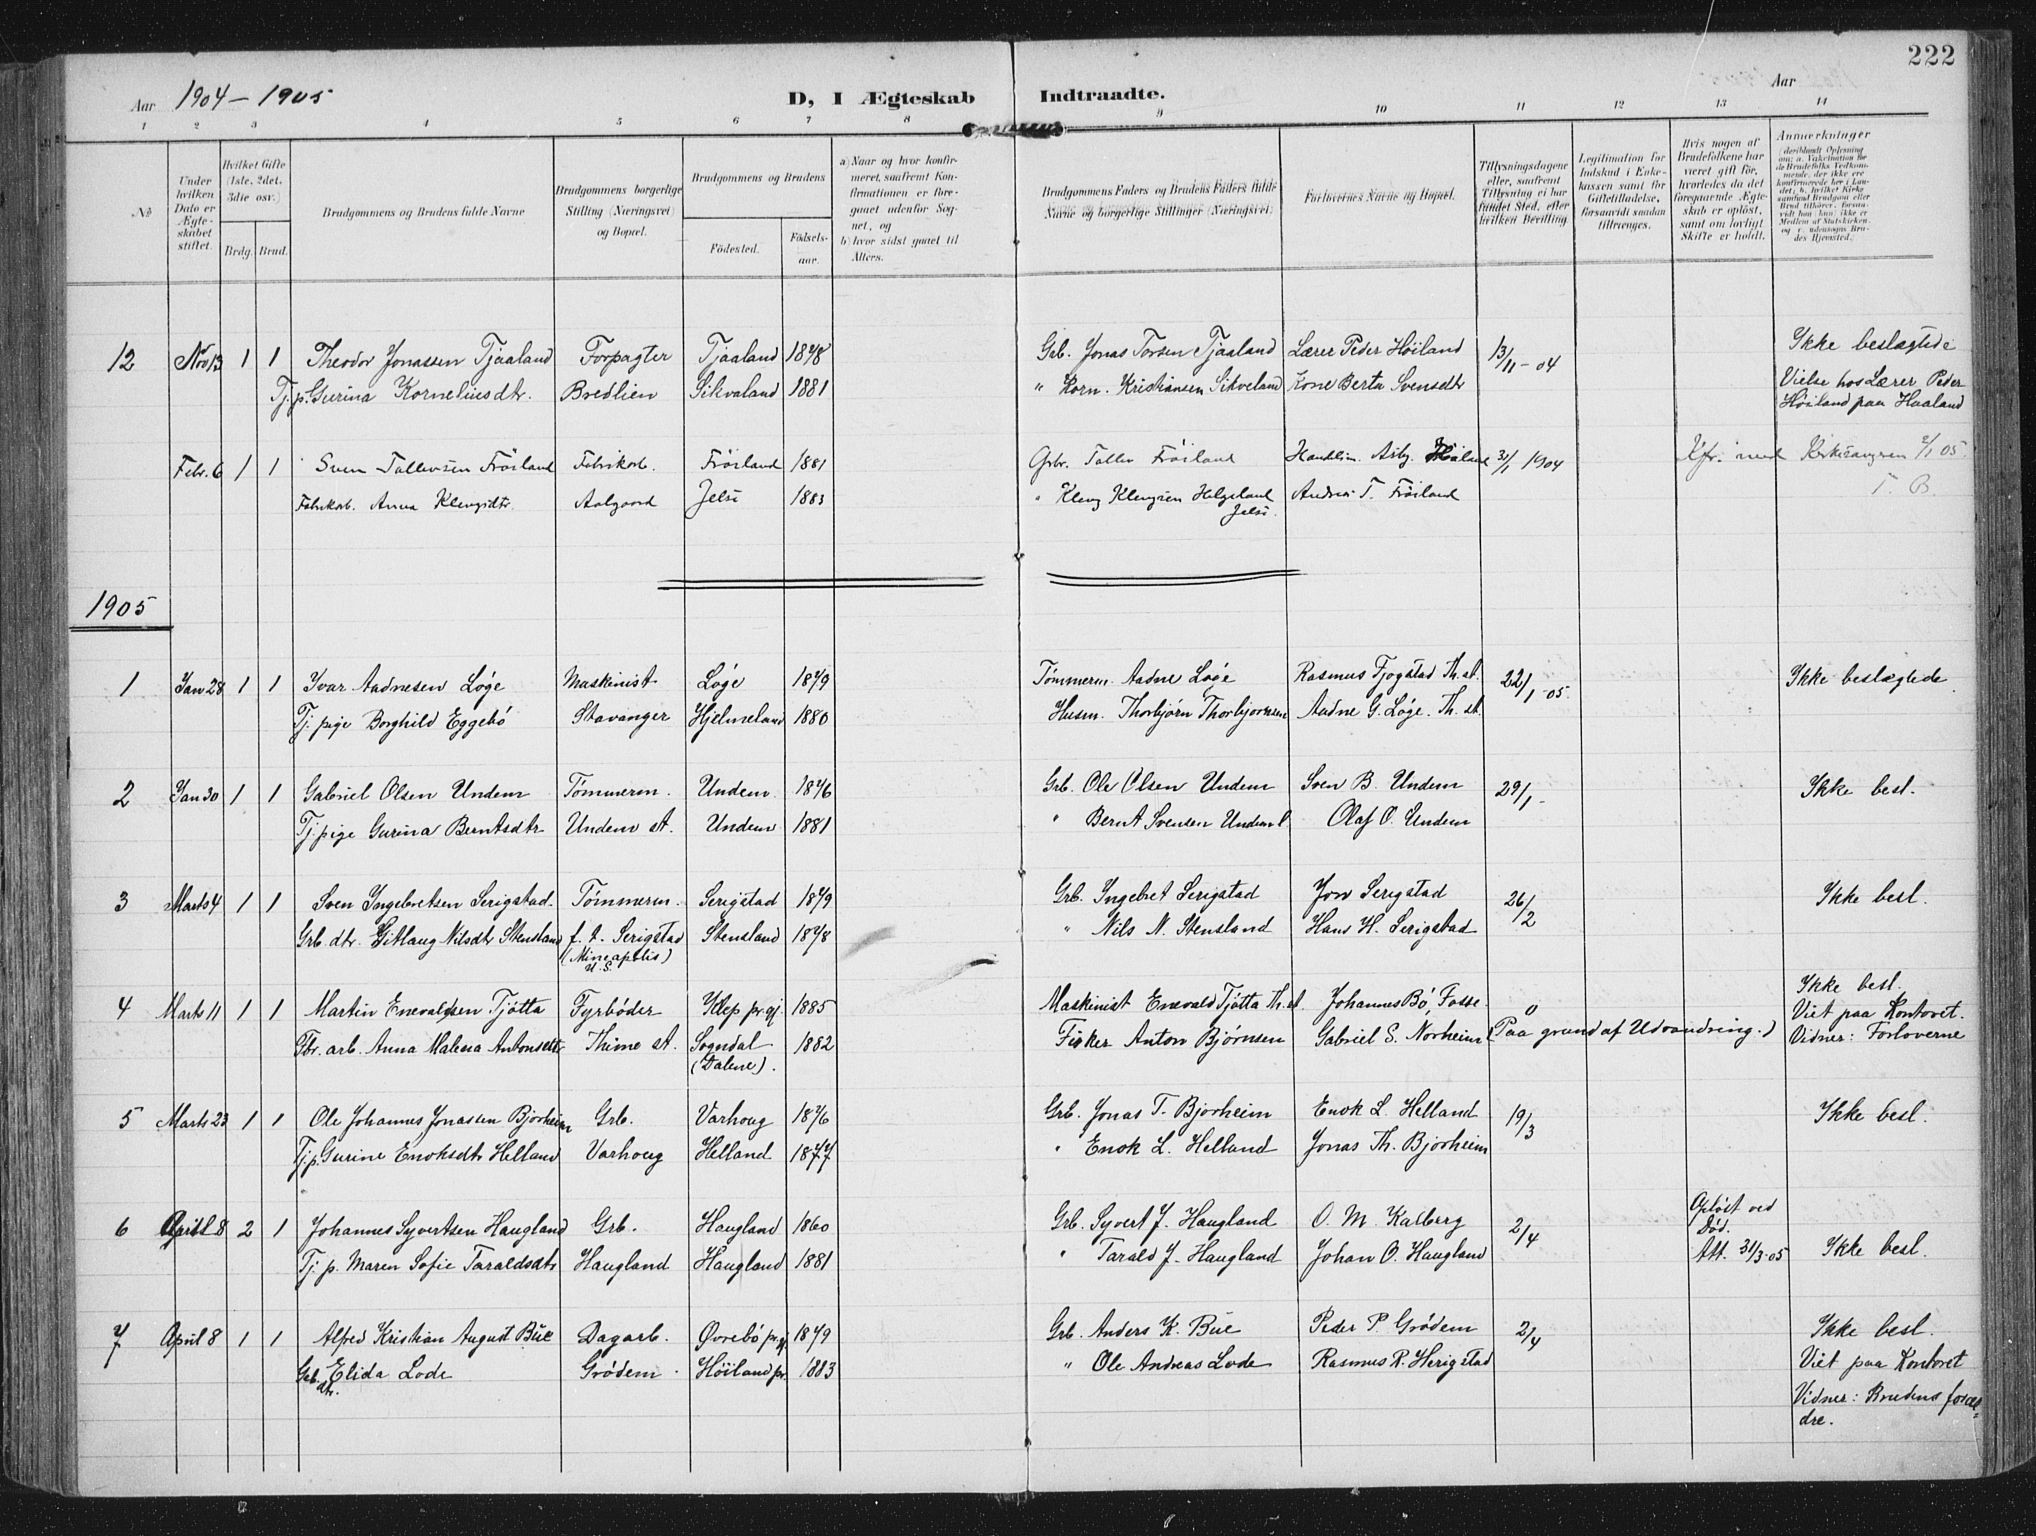 222
Aar 1904-1905 D, I Ægteskab Indtraadte. Aar
1 2 3 4 5 6 7 8 9 10 11 12 13 14
No
Under hvilken Dato er Ægteskabet stiftet.
Hvilket Gifte (1ste, 2det, 3die osv.)
Brdg. Brud.
Brudgommens og Brudens fulde Navne
Brudgommens borgerlige Stilling (Næringsvei) og Bopæl.
Brudgommens og Brudens
Födested. Födsels-aar.
a) Naar og hvor konfirmeret, saafremt Konfirmationen er foregaaet udenfor Sognet, og
b) hvor sidst gaaet til Alters.
Brudgommens Faders og Brudens Faders fulde Navne og borgerlige Stillinger (Næringsvei)
Forlovernes Navne og Bopæl.
Tillysningsdagene eller, saafremt Tillysning ei har fundet Sted, efter hvilken Bevilling
Legitimation for Indskud i Enkekassen samt for Giftetilladelse, forsaavidt saadan tiltrænges.
Hvis nogen af Brudefolkene har været gift før, hvorledes da det foregaaende Ægteskab er opløst, samt om lovligt Skifte er holdt.
Anmerkninger
12 Nov 13 1 1 Theodor Jonassen Tjaaland Forpagter Tjaaland 1878 Grb. Jonas Torsen Tjaaland Lærer Peder Höiland 13/11-04 Ikke beslægtede
Tj.p. Gurina Kornelius dtr. Bredlien Sikvaland 1881 " Korn. Kristiansen Sikveland Kone Berta Svensdtr Vielse hos Lærer Peder
Höiland paa Haaland
Febr. 6 1 1 Sven Tallevsen Fröiland Fabrikarb. Fröiland 1881 Grbr. Tallev Fröiland 31/1 1904 Kfr. med 2/1 05.
Fabrikarb. Anna Klengsdtr. Aalgaard Jelsi 1883 " Kleng Klengsen Helgeland Andreas T. Fröiland T. B.
Jelsi.
1905
1 Jan 28 1 1 Ivar Aadnesen Löge Maskinist Löge 1879 Tömmerm. Aadne Löge Rasmus Fjogstad Th. st. 22/1-05. Ikke beslægtede
Tj. pige Borghild Eggebö Stavanger Hjelmeland 1880 Husm. Thorbjörn Thorbjornsen Aadne G. Löge. Th. st.
2 Jan 30 1 1 Gabriel Olsen Undem Tömmerm. Undem. 1876 Grb. Ole Olsen Undem Sven B. Undem 29/1- Ikke besl.
Tj. pige Gurina Berntsdtr Undem st. Undem 1881 " Bernt Svensen Undem Olaf O. Undem
3 Marts 4 1 1 Sven Ingebretsen Serigstad. Tömmerm. Serigstad 1879 Grb. Ingebret Serigstad Jon Serigstad 26/2 Ikke besl.
Grb. dtr. Gitlaug Nilsdtr Stensland f. t. Serigstad Stensland 1878 " Nils N. Stensland Hans H. Serigstad
(Mineapolis)
U.S.
4 Marts 11 1 1 Martin Enevaldsen Tjötta Fyrböder Klep pr.gj. 1885 Maskinist Enevald Tjötta Th. st. Johannes Bö, Fosse. 0 Ikke besl.
Viet paa Kontoret.
Fbr. arb. Anna Malena Antonsdtr Thime st. Sogndal 1882 Fisker Anton Bjørnsen Gabriel S. Norheim (Paa grund af Udvandring.) Vidner: Forloverne
(Dalene).
5 Marts 23 1 1 Ole Johannes Jonassen Bjorheim Grb. Varhoug 1876 Grb. Jonas T. Bjorheim Enok L. Helland 19/3 Ikke besl.
Tj.p. Gurine Enoksdtr Helland Varhoug Helland 1877 " Enok L. Helland Jonas Th. Bjorheim
6 April 8 2 1 Johannes Syvertsen Haugland Grb. Haugland 1860 Grb. Syvert J. Haugland O. M. Kalberg 2/4 Oplöst ved
Död.
Tj. p. Maren Sofie Taraldsdtr Haugland Haugland 1881 " Tarald J. Haugland Johan O. Haugland Att. 31/3-05 Ikke besl.
7 April 8 1 1 Alfred Kristian August Bue Dagarb. Øvrebö pr.gj. 1879 Grb. Anders K. Bue Peder P. Grödem 2/4 Ikke besl.
Grb. dtr. Elida Lode Grödem Höiland pr. 1883 " Ole Andreas Lode Rasmus R. Herigstad Viet paa Kontoret
Vidner: Brudens foræl-
dre.